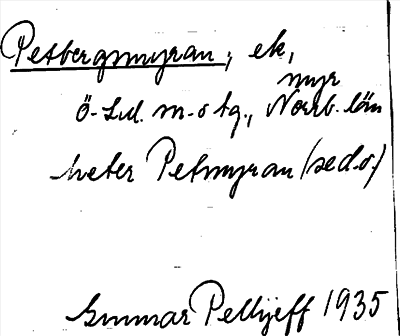 Petbergsmyran, ek,
myr
Ö-Lul. m-s tg., Norrb. län
heter Petmyran (se d.o.)
Gunnar Pellijeff 1935